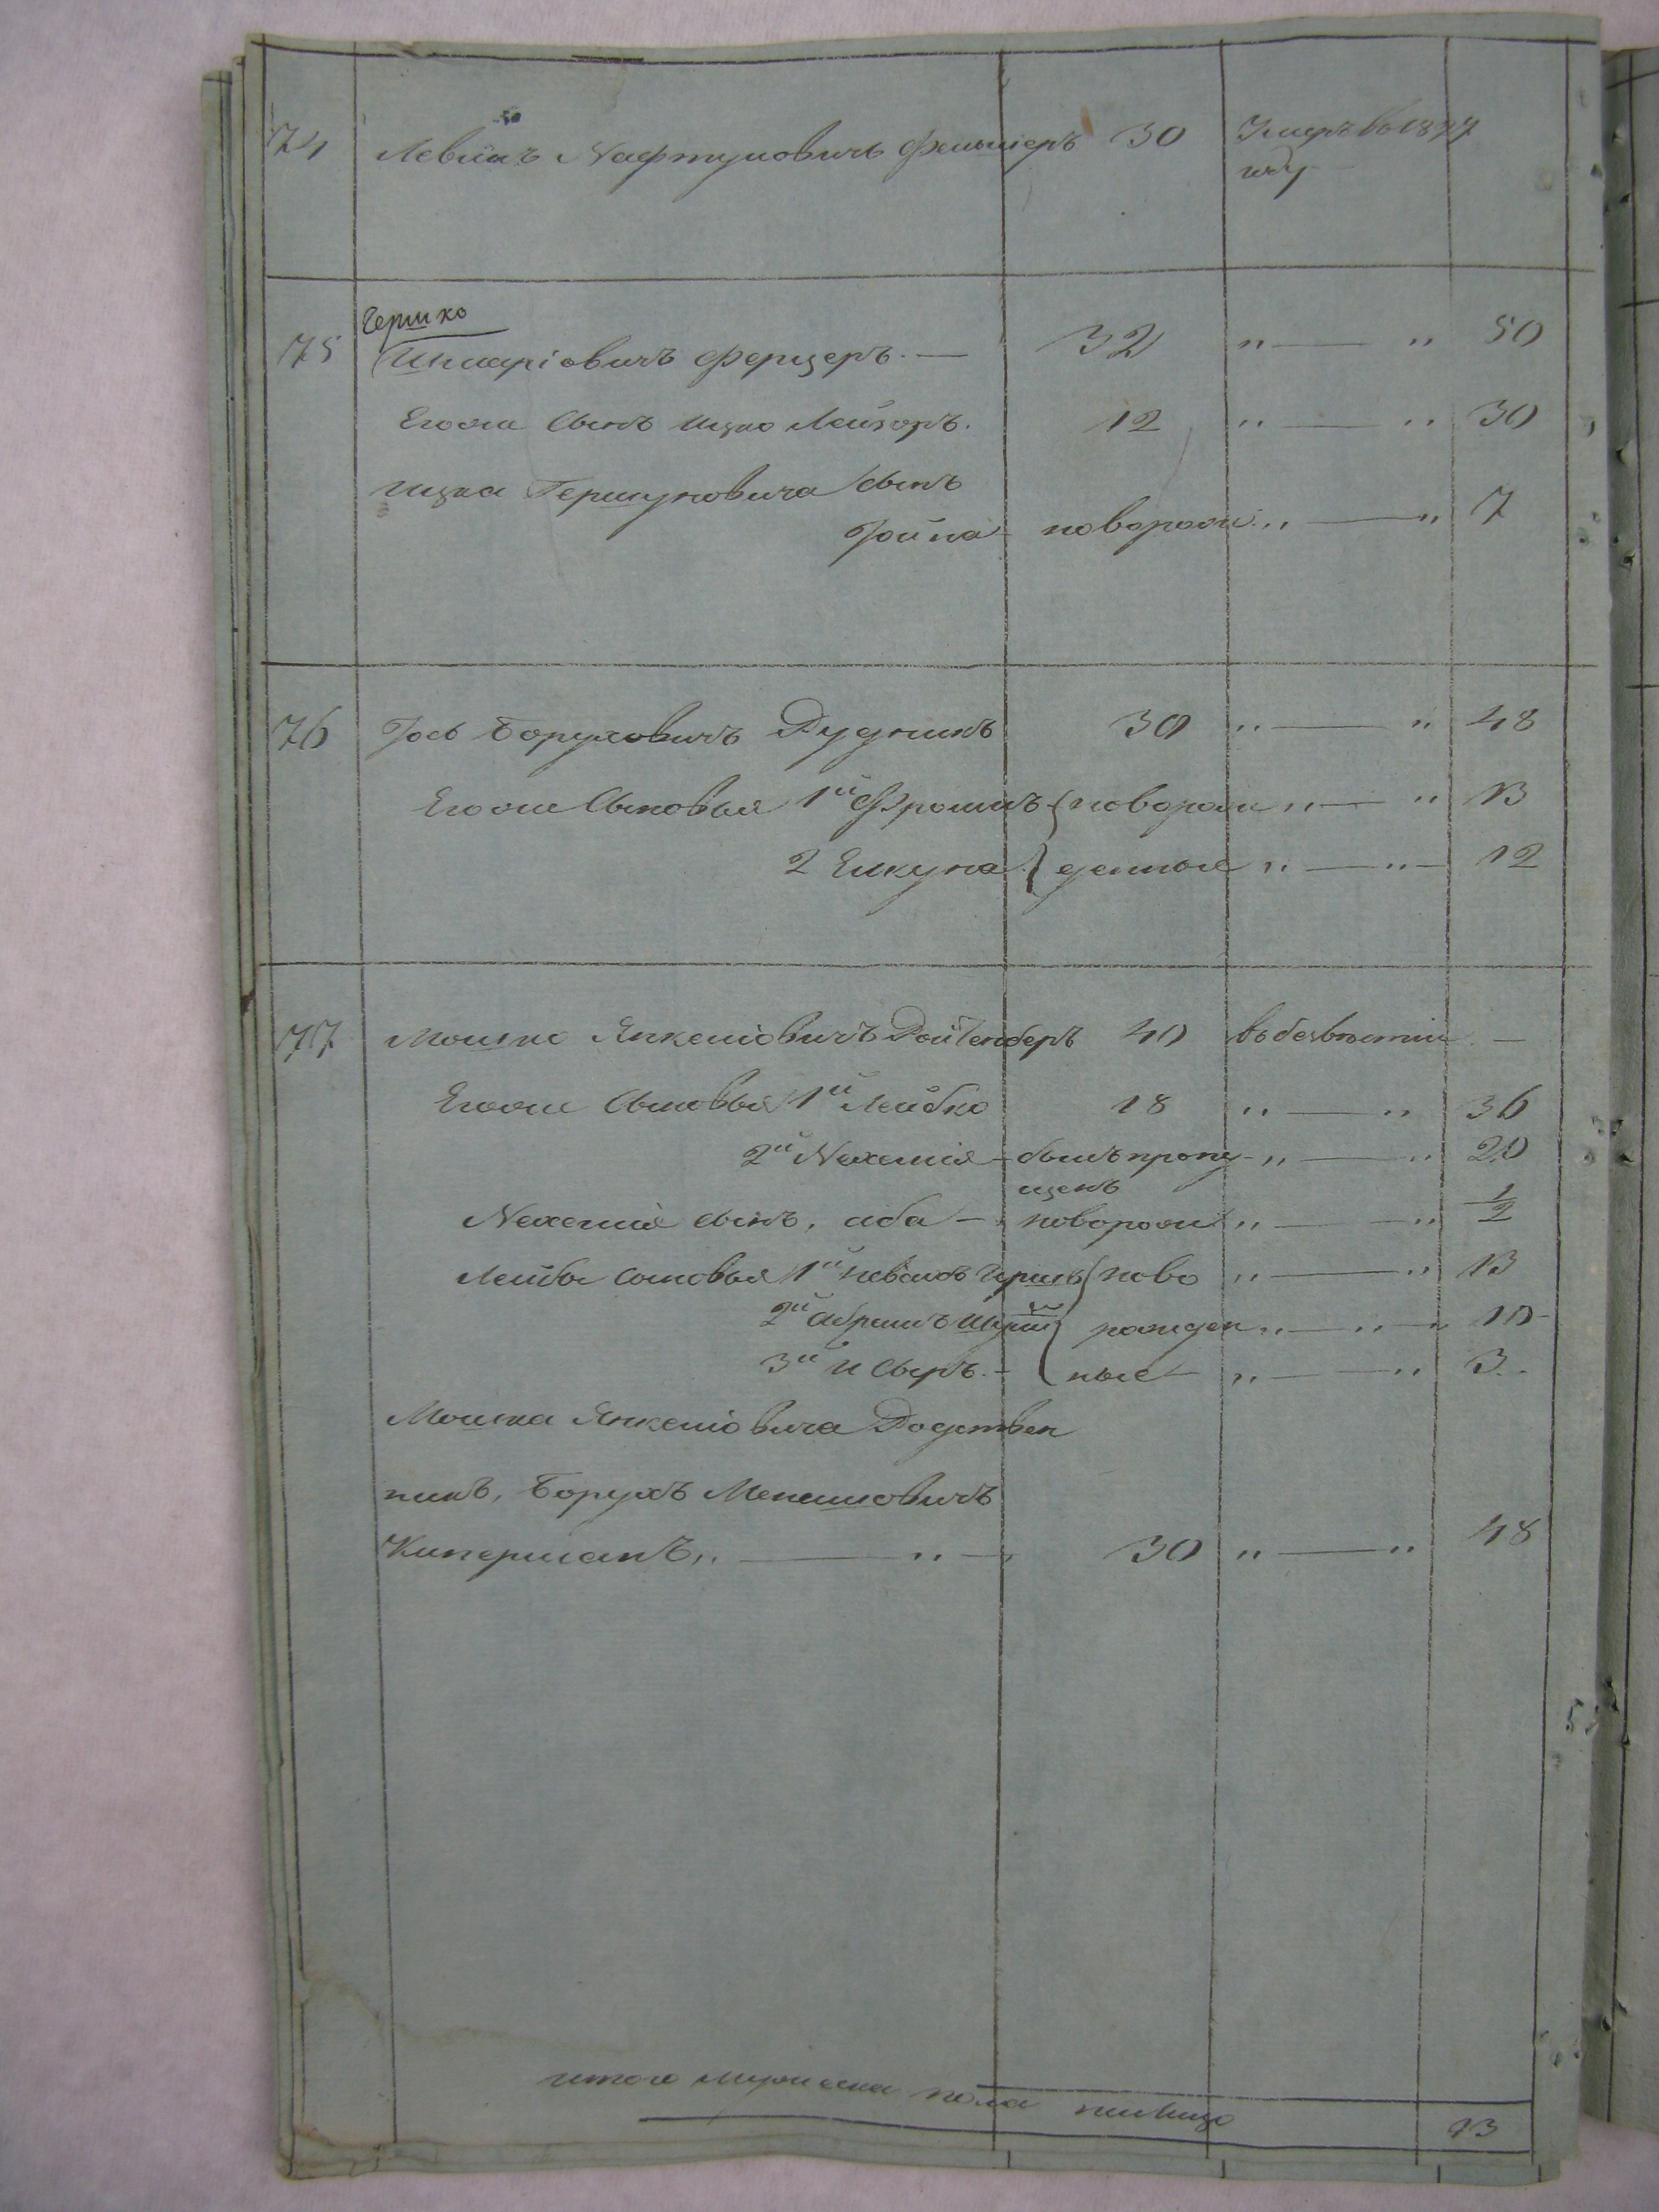 74 Левикъ Нафтуловичъ Фельшеръ 30 Умеръ въ 1847
году
Гершко
75 Шмаріовичъ Ферцеръ.— 32 „ — „ 50
Егоже Сынъ Ицко Лейзоръ. 12 „ — „ 30
Ицка Гершуновича Сынъ
Іойна новорожд. „ — „ 7
76 Іось Боруховичъ Рудникъ 30 „ — „ 48
Егоже Сыновья 1й Фроимъ новорож „ — „ 13
2 Елкуна денные „ — „ 12
77 Мошко Янкеліовичъ Ройтенберъ 40 въ безвѣстіи —
Егоже Сыновья 1й Лейбко 18 „ — „ 36
2й Нехемія — былъ пропу- „ — „ 20
щенъ
Нехеміи сынъ, Аба — новорожд „ — „ 1/2
Лейбы Сыновья 1й Гершъ ново „ — „ 13
2й Абрамъ рожден „ — „ 10
3й ные „ — „ 3.
Мошка Янкеліовича Родствен
никъ, Борухъ Менашовичъ
Киперманъ „ — „ — 30 „ — „ 48
итого мужеска пола налицо 13